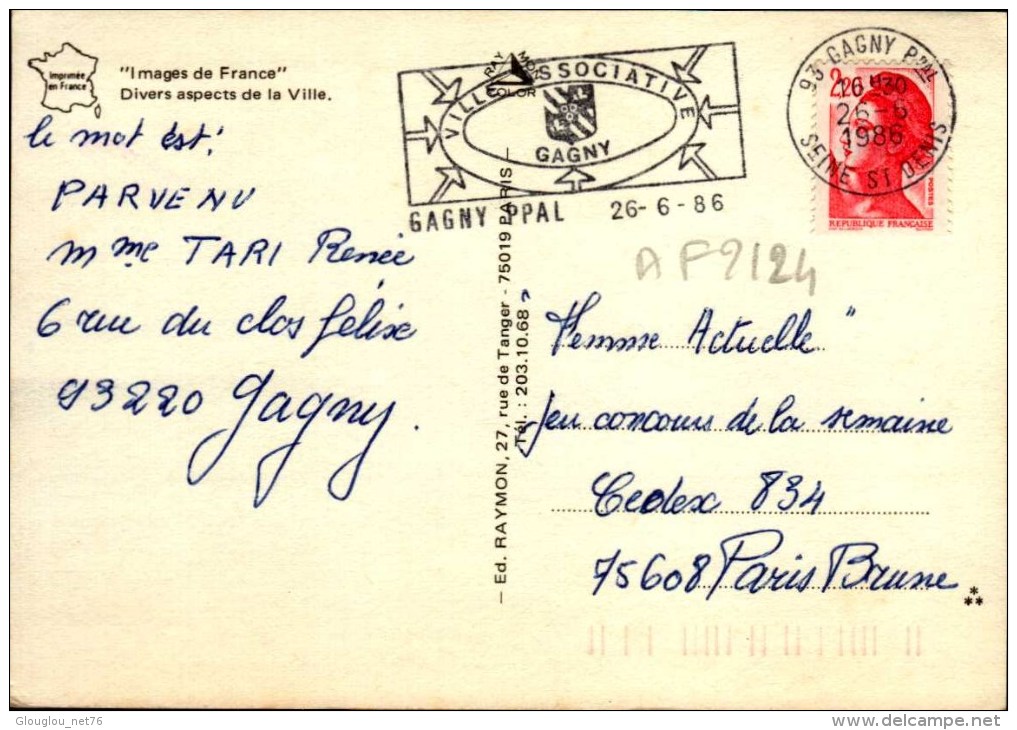 Imprimée
en France
"Images de France"
Divers aspects de la Ville.
le mot est:
PARVENU
Mme TARI Renée
6 rue du clos félixe
93220 Gagny.
RAY MON
COLOR
VILLE ASSOCIATIVE
GAGNY
GAGNY PPAL 26-6-86
93 GAGNY PPAL
16H30
26-6
1986
SEINE ST DENIS
2,20
POSTES
REPUBLIQUE FRANÇAISE
AF9124
— Ed. RAYMON, 27, rue de Tanger - 75019 PARIS —
Tél. : 203.10.68
"Femme Actuelle"
Jeu concours de la semaine
Cedex 834
75608 Paris Brune
Glouglou_net76
delcampe.net